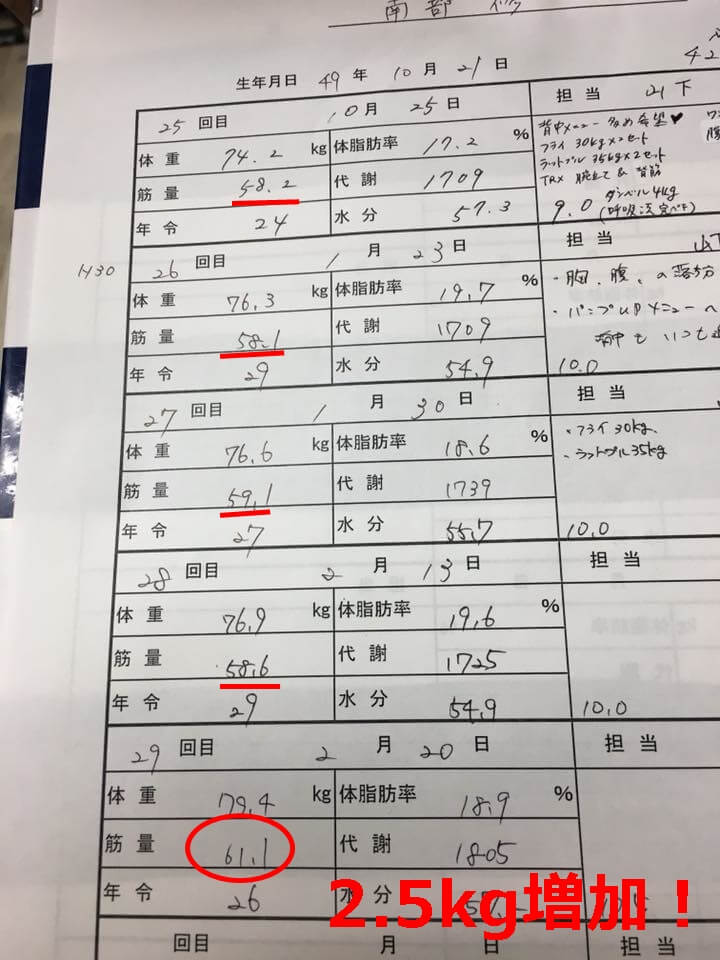 南部
生年月日 49年 10月 21日
25回目 10月 25日 担当 山下
体重 74.2 kg 体脂肪率 17.2 %
筋量 58.2 代謝 1709
年令 24 水分 57.3
背中メニュー多め希望♥
フライ 30kg×2セット
ラットプル 35kg×2セット
TRX 腕立て & 背筋
ダンベル4kg
9.0
H30
26回目 1月 23日 担当
体重 76.3 kg 体脂肪率 19.7 %
筋量 58.1 代謝 1709
年令 29 水分 54.9
・胸、腹、
・パンプUPメニューへ
10.0
27回目 1月 30日 担当
体重 76.6 kg 体脂肪率 18.6 %
筋量 59.1 代謝 1739
年令 27 水分 55.7
・フライ30kg
・ラットプル35kg
10.0
28回目 2月 13日 担当
体重 76.9 kg 体脂肪率 19.6 %
筋量 58.6 代謝 1725
年令 29 水分 54.9
10.0
29回目 2月 20日 担当
体重 79.4 kg 体脂肪率 18.9 %
筋量 61.1 代謝 1805
年令 26 水分
2.5kg増加！
回目 月 日 担当